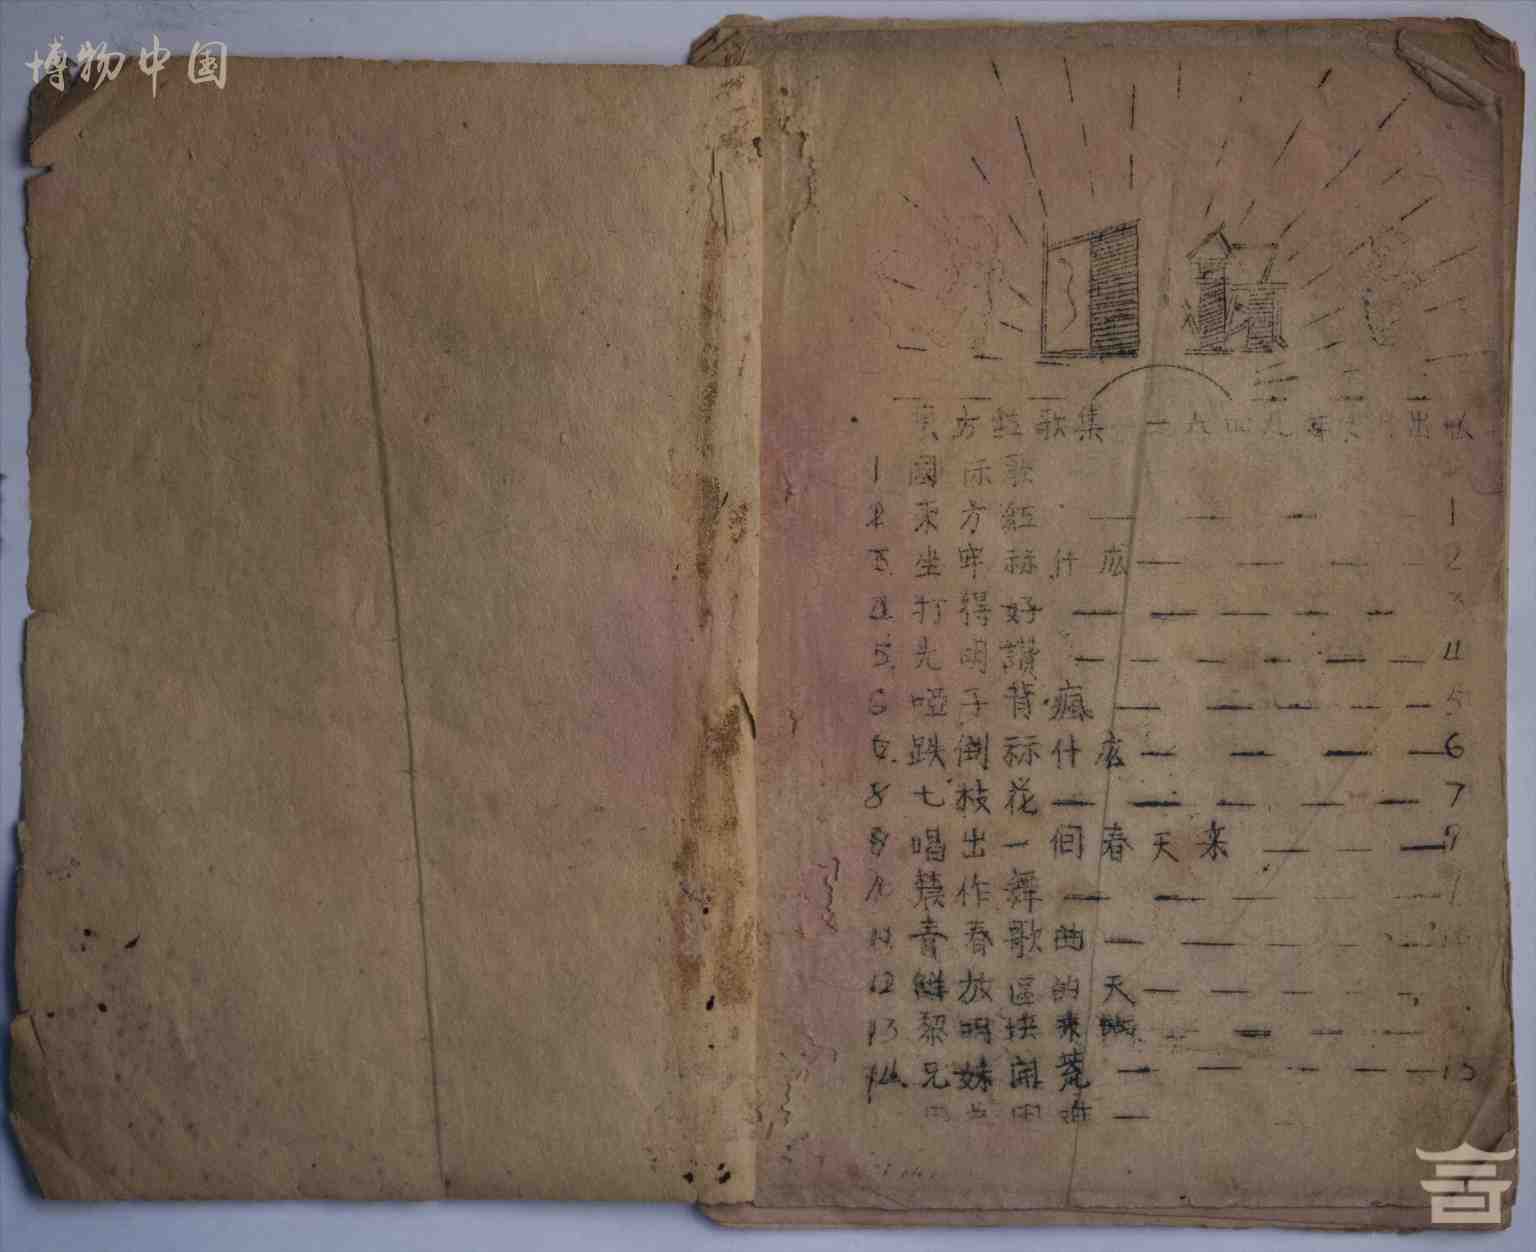 博物中国
東方紅歌集 一九四九年 出版
1 國际歌
2 东方紅 1
3. 坐牢祘什庅 2
4. 打得好 3
5. 光明讚 4
6 啞子背瘋 5
7. 跌倒祘什庅 6
8 七枝花 7
9 唱出一個春天来 9
作舞
11 青春歌曲
12 觧放區的天
13 黎明快来
14. 兄妹開荒 13